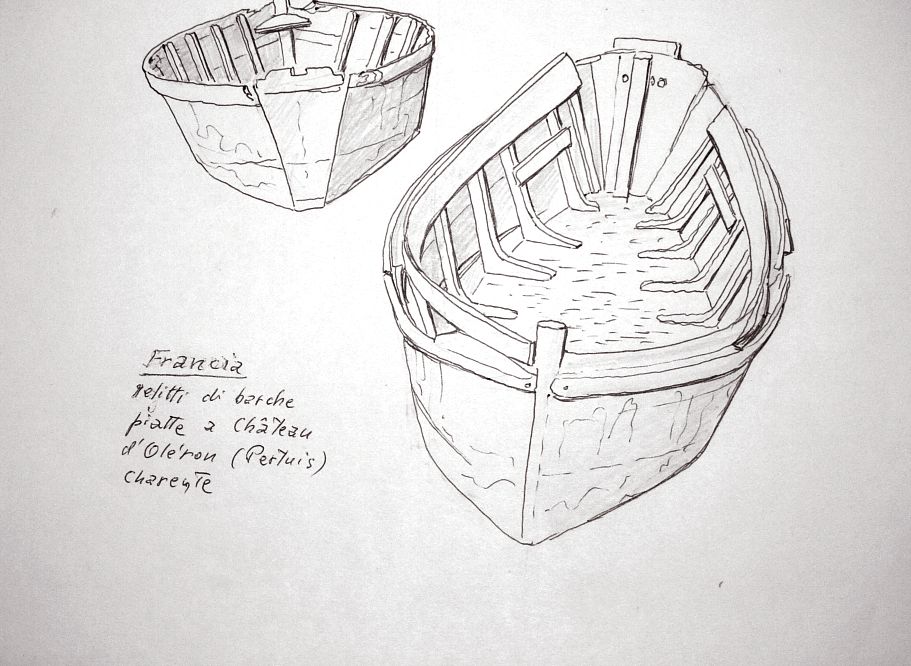 Francia
relitti di barche
piatte a Château
d'Oléron (Pertuis)
charente